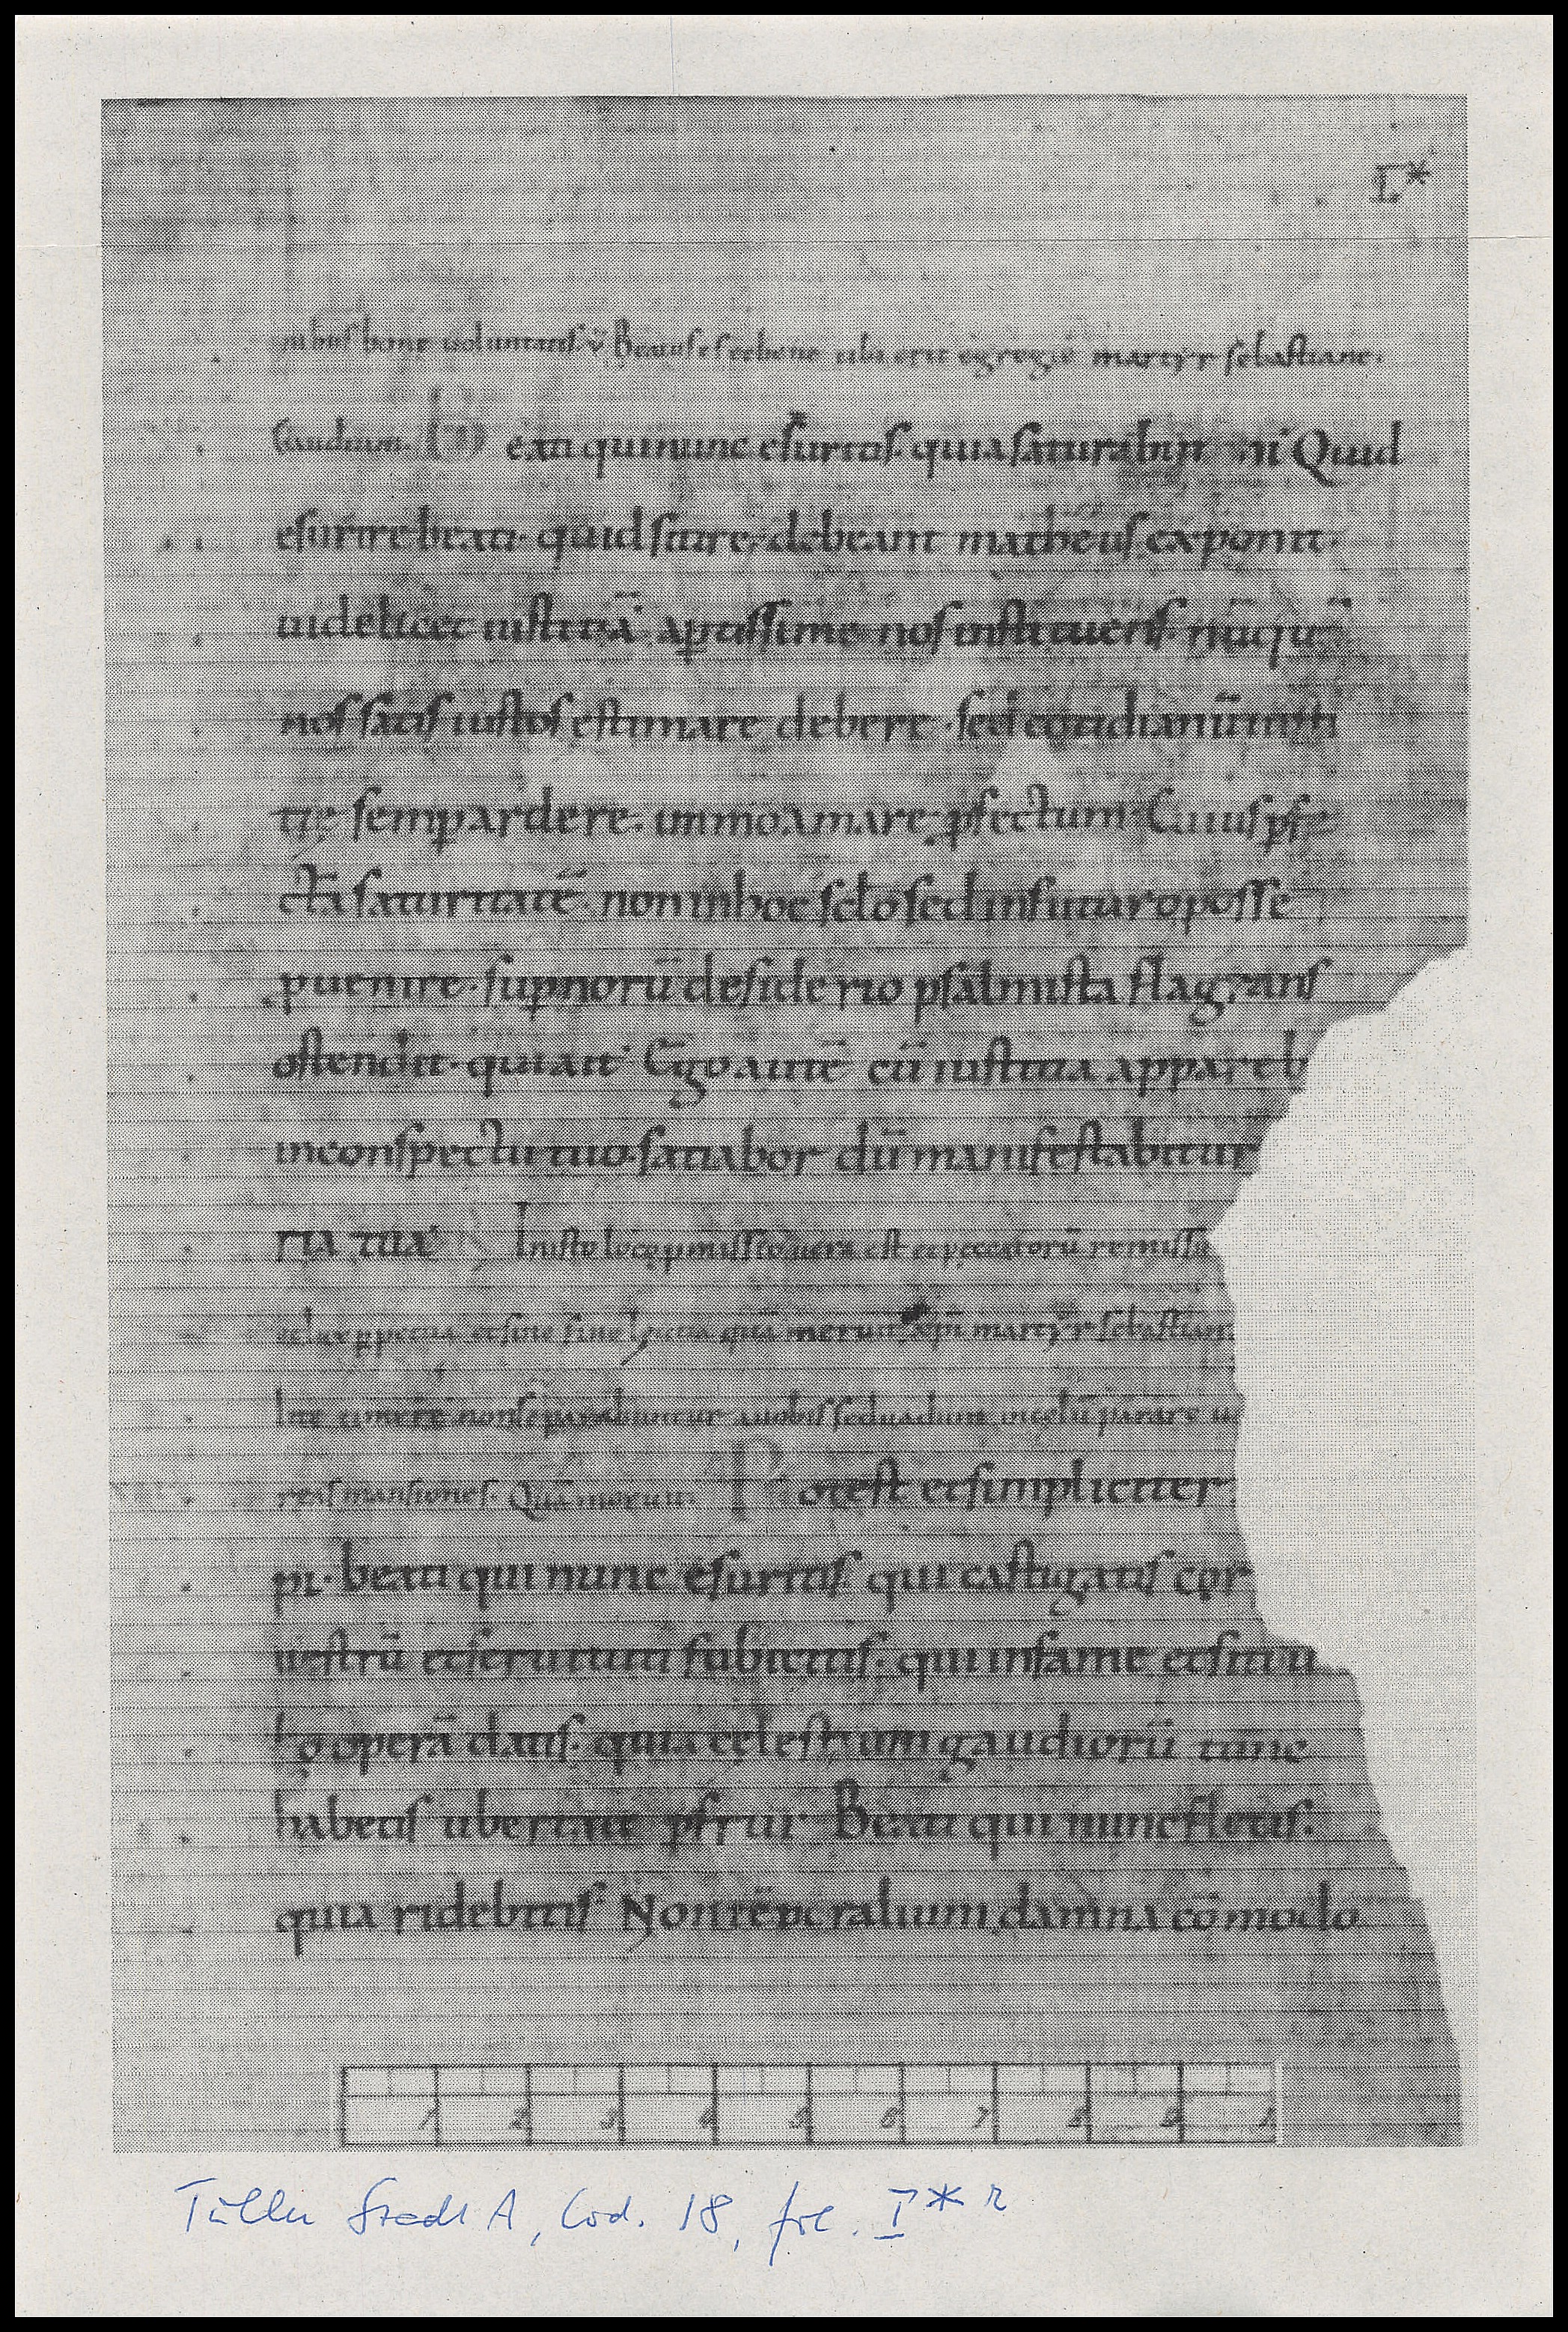 I*
nibus bone uoluntatis. v̄ Beatus es et bene tibi erit egregie martyr sebastiane.
Gaudium. B eati qui nunc esuritis. quia saturabim ni Quid
esurire beati. quid sitire debeant matheus exponit.
uidelicet iustitiā apertissime nos instituens. nūqū
nos satis iustos estimare debere. sed cotidianū iusti
tię semp ardere. immo amare pfectum. Cuius pfe
ctā saturitatē. non in hoc sclo sed in futuro posse
puenire. supnorū desiderio psalmista flagrans
ostendit. qui ait. Ego autē cū iustitia appareb
in conspectu tuo. satiabor dū manifestabitur
ria tua. In isto loco pmissio uera est et peccatorū remissio
et lux ppetua et sine fine letitia quā meruit xpi martyr sebastian
non separabuntur a uobis sed uadunt in celū parare
mansiones. Quā meruit. P otest et simpliciter
pi. beati qui nunc esuritis. qui castigatis cor
uestrū et seruituti subicitis. qui in fame et siti u
bo operā datis. quia cęlestium gaudiorū tunc
habetis ubertate pfrui. Beati qui nunc fletis.
quia ridebitis. Non rerū pcralium damna cōmodo
1 2 3 4 5 6 7 8 9 1
Tulln StadtA, Cod. 18, fol. I* r